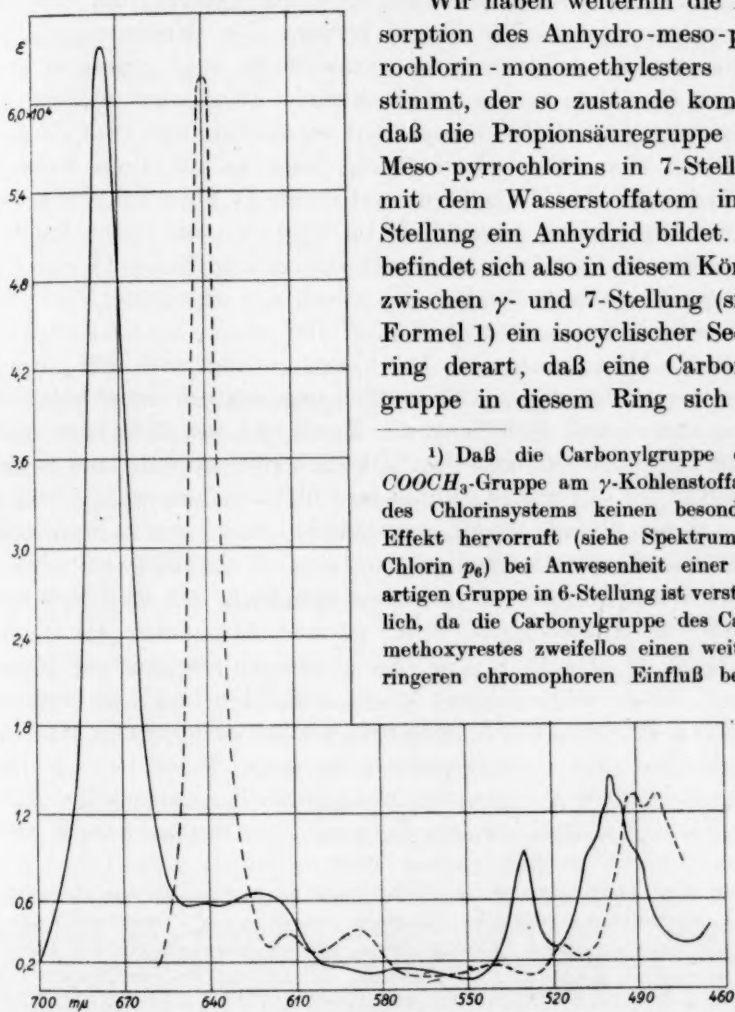 Wir haben weiterhin die
sorption des Anhydro-meso-p
rochlorin-monomethylesters
stimmt, der so zustande kom
daß die Propionsäuregruppe
Meso-pyrrochlorins in 7-Stell
mit dem Wasserstoffatom in
Stellung ein Anhydrid bildet.
befindet sich also in diesem Kör
zwischen γ- und 7-Stellung (si
Formel 1) ein isocyclischer Sec
ring derart, daß eine Carbo
gruppe in diesem Ring sich
¹) Daß die Carbonylgruppe
COOCH₃-Gruppe am γ-Kohlenstoffa
des Chlorinsystems keinen besond
Effekt hervorruft (siehe Spektrum
Chlorin p₆) bei Anwesenheit einer
artigen Gruppe in 6-Stellung ist verst
lich, da die Carbonylgruppe des Ca
methoxyrestes zweifellos einen weit
ringeren chromophoren Einfluß be
ε
6,0×10⁴
5,4
4,8
4,2
3,6
3,0
2,4
1,8
1,2
0,6
0,2
700 mµ 670 640 610 580 550 520 490 460